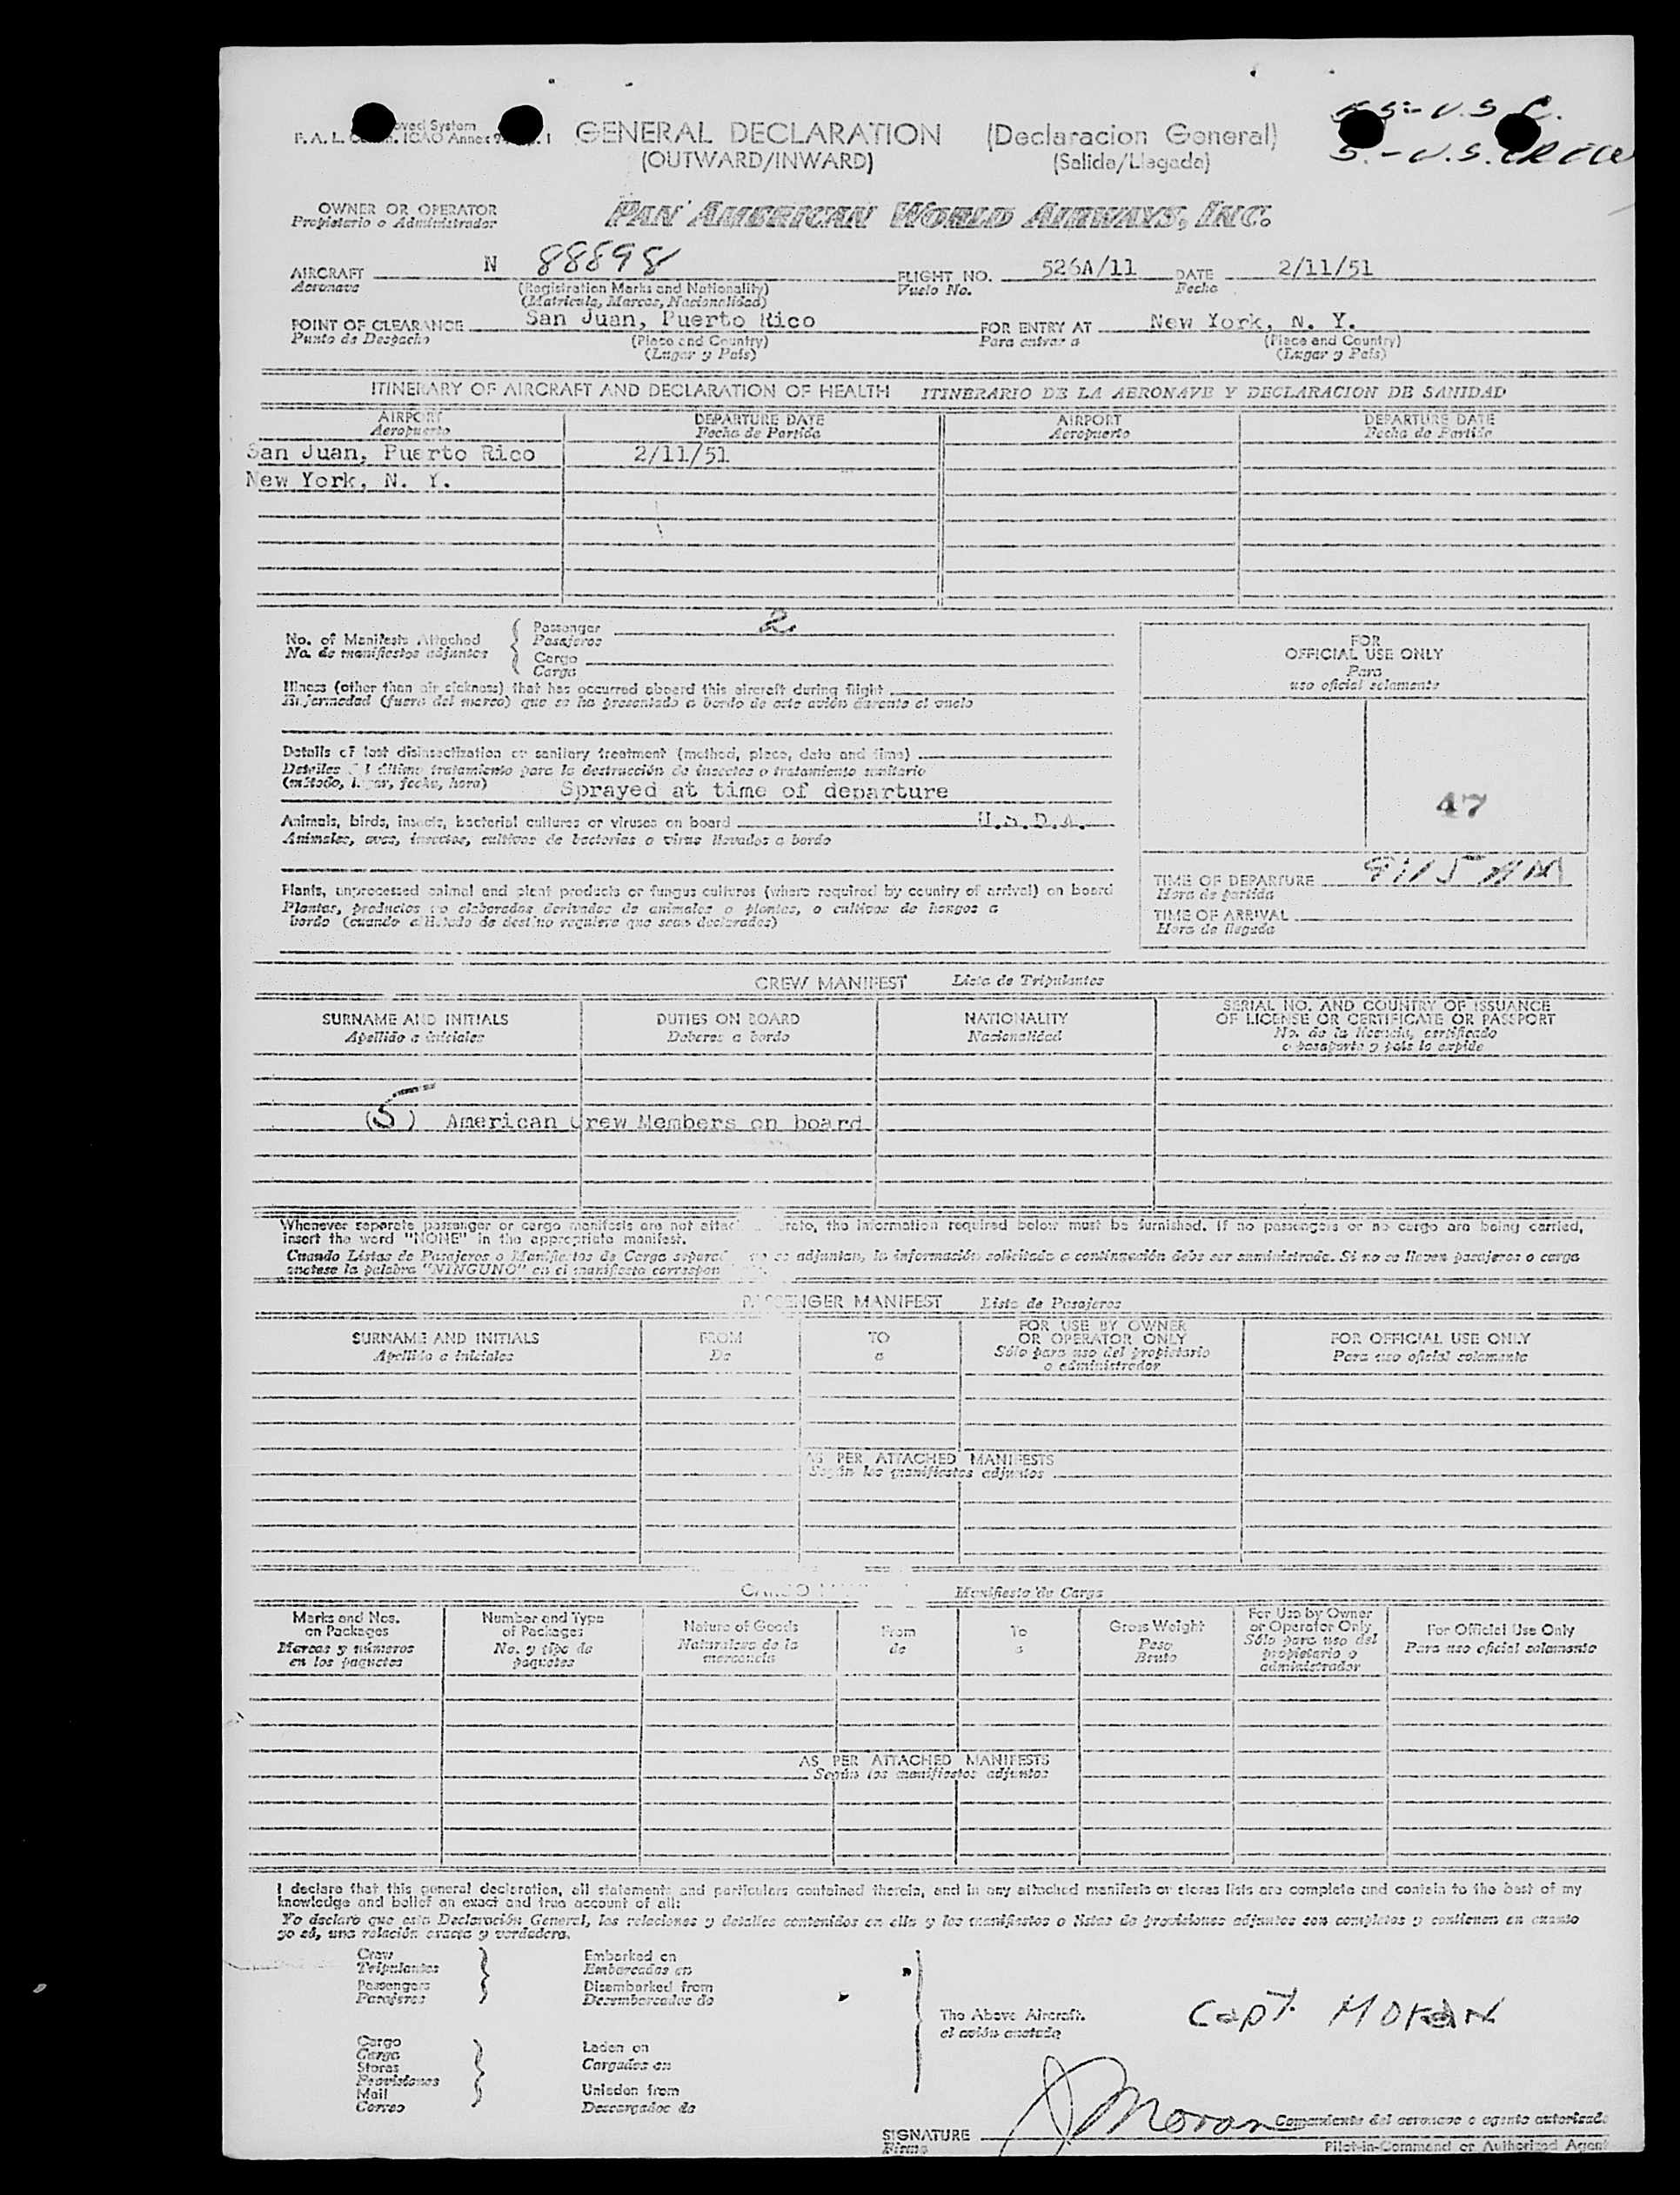 GENERAL DECLARATION (Declaracion General)
(OUTWARD/INWARD) (Salida/Llegada)
F. A. L. ICAO Annex
5.-U.S. CREW
OWNER OR OPERATOR
Propietario o Administrador
PAN AMERICAN WORLD AIRWAYS, INC.
AIRCRAFT N 88898 FLIGHT NO. 526A/11 DATE 2/11/51
Aeronave (Registration Marks and Nationality) Vuelo No. Fecha
(Matricula, Marcas, Nacionalidad)
POINT OF CLEARANCE San Juan, Puerto Rico FOR ENTRY AT New York, N. Y.
Punto de Despacho (Place and Country) Para entrar a (Place and Country)
(Lugar y País) (Lugar y País)
ITINERARY OF AIRCRAFT AND DECLARATION OF HEALTH ITINERARIO DE LA AERONAVE Y DECLARACION DE SANIDAD
AIRPORT DEPARTURE DATE AIRPORT DEPARTURE DATE
Aeropuerto Fecha de Partida Aeropuerto Fecha de Partida
San Juan, Puerto Rico 2/11/51
New York, N. Y.
No. of Manifests Attached
No. de manifiestos adjuntos
Passenger 2
Pasajeros
Cargo
Carga
FOR
OFFICIAL USE ONLY
Para
uso oficial solamente
Illness (other than air sickness) that has occurred aboard this aircraft during flight
Enfermedad (fuera del mareo) que se ha presentado a bordo de este avión durante el vuelo
Details of last disinsectization or sanitary treatment (method, place, date and time)
Detalles último tratamiento para la destrucción de insectos o tratamiento sanitario
(método, lugar, fecha, hora) Sprayed at time of departure
47
Animals, birds, insects, bacterial cultures or viruses on board U.S.D.A.
Animales, aves, insectos, cultivos de bacterias o virus llevados a bordo
Plants, unprocessed animal and plant products or fungus cultures (where required by country of arrival) on board
Plantas, productos no elaborados derivados de animales o plantas, o cultivos de hongos a
bordo (cuando el Estado de destino requiera que sean declarados)
TIME OF DEPARTURE 9:15 AM
Hora de partida
TIME OF ARRIVAL
Hora de llegada
CREW MANIFEST Lista de Tripulantes
SURNAME AND INITIALS DUTIES ON BOARD NATIONALITY SERIAL NO. AND COUNTRY OF ISSUANCE
OF LICENSE OR CERTIFICATE OR PASSPORT
Apellido e iniciales Deberes a bordo Nacionalidad No. de la licencia, certificado
o pasaporte y país lo expide
(5) American Crew Members on board
Whenever separate passenger or cargo manifests are not attac rato, the information required below must be furnished. If no passengers or no cargo are being carried,
insert the word "NONE" in the appropriate manifest.
Cuando Listas de Pasajeros o Manifiestos de Carga separad no se adjuntan, la información solicitada a continuación debe ser suministrada. Si no se llevan pasajeros o carga
anotese la palabra "NINGUNO" en el manifiesto correspon
PASSENGER MANIFEST Lista de Pasajeros
SURNAME AND INITIALS FROM TO FOR USE BY OWNER
OR OPERATOR ONLY FOR OFFICIAL USE ONLY
Apellido e iniciales De a Sólo para uso del propietario
o administrador Para uso oficial solamente
AS PER ATTACHED MANIFESTS
Según los manifiestos adjuntos
CARGO Manifiesto de Carga
Marks and Nos.
on Packages
Marcas y números
en los paquetes
Number and Type
of Packages
No. y tipo de
paquetes
Nature of Goods
Naturaleza de la
mercancía
From
de
To
a
Gross Weight
Peso
Bruto
For Use by Owner
or Operator Only
Sólo para uso del
propietario o
administrador
For Official Use Only
Para uso oficial solamente
AS PER ATTACHED MANIFESTS
Según los manifiestos adjuntos
I declare that this general declaration, all statements and particulars contained therein, and in any attached manifests or stores lists are complete and contain to the best of my
knowledge and belief an exact and true account of all:
Yo declaro que esta Declaración General, las relaciones y detalles contenidos en ella y los manifiestos o listas de provisiones adjuntos son completos y contienen en cuanto
yo sé, una relación exacta y verdadera.
Crew
Tripulantes
Passengers
Pasajeros
Embarked on
Embarcados en
Disembarked from
Desembarcados de
Cargo
Carga
Stores
Provisiones
Mail
Correo
Laden on
Cargados en
Unladen from
Descargados de
The Above Aircraft.
el avión anotado
Capt. MORAN
SIGNATURE J Moran
Firma
Comandante del aeronave o agente autorizado
Pilot-in-Command or Authorized Agent